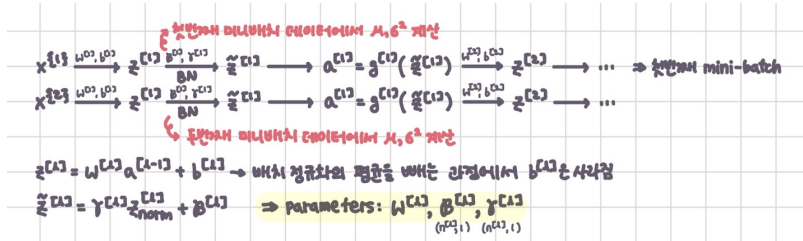 첫번째 미니배치 데이터에서 μ, σ² 계산
X^{1} —W^[1], b^[1]→ z^[1] —β^[1], γ^[1] BN→ z̃^[1] → a^[1] = g^[1](z̃^[1]) —W^[2], b^[2]→ z^[2] → ... ⇒ 첫번째 mini-batch
X^{2} —W^[1], b^[1]→ z^[1] —β^[1], γ^[1] BN→ z̃^[1] → a^[1] = g^[1](z̃^[1]) —W^[2], b^[2]→ z^[2] → ...
두번째 미니배치 데이터에서 μ, σ² 계산
z^[l] = W^[l] a^[l-1] + b^[l] → 배치 정규화의 평균을 빼는 과정에서 b^[l]은 사라짐
z̃^[l] = γ^[l] z^[l]_norm + β^[l] ⇒ parameters: W^[l], β^[l], γ^[l]
(n^[l], 1) (n^[l], 1)